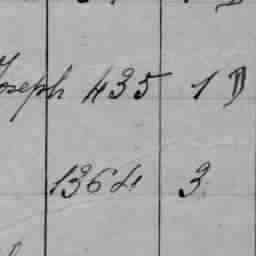 Joseph 435 1 D
1364 3